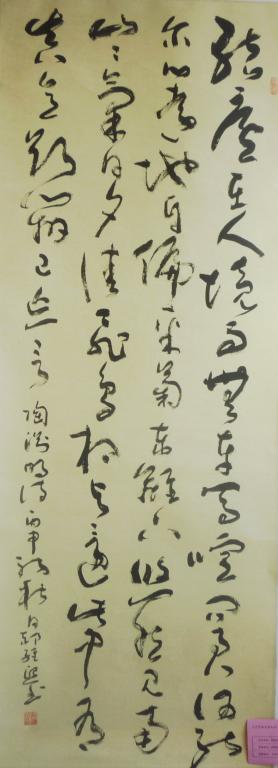 結廬在人境而無車馬喧問君何能
爾心遠地自偏采菊東籬下悠然見南
山〻氣日夕佳飛鳥相與還此中有
真意欲辨已忘言 陶淵明詩 丙申初秋月